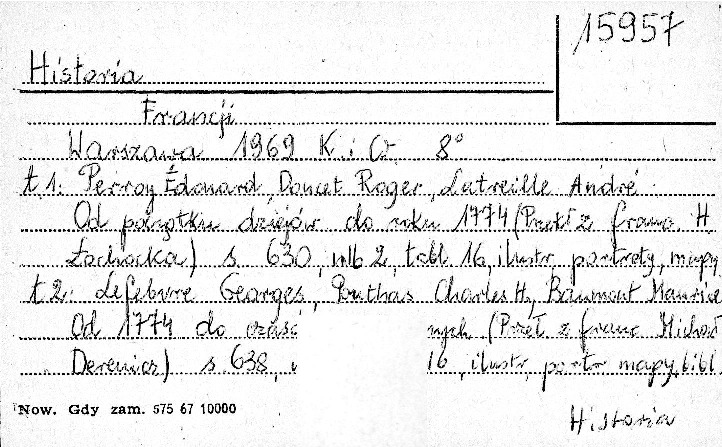 15957
Historia
Francji
Warszawa 1969 K. i W. 8°
t. 1: Perroy Édouard, Doucet Roger, Latreille André
Od początku dziejów do roku 1774 (Przeł z franc H
Łochocka) s 630, nlb 2, tabl 16, ilustr, portrety, mapy
t 2: Lefebvre Georges, Pouthas Charles H, Baumont Maurice
Od 1774 do czasó nych (Przeł z franc Michał
Derenicz) s 638, 16, ilustr, portr mapy, bibl.
Now. Gdy zam. 575 67 10000
Historia